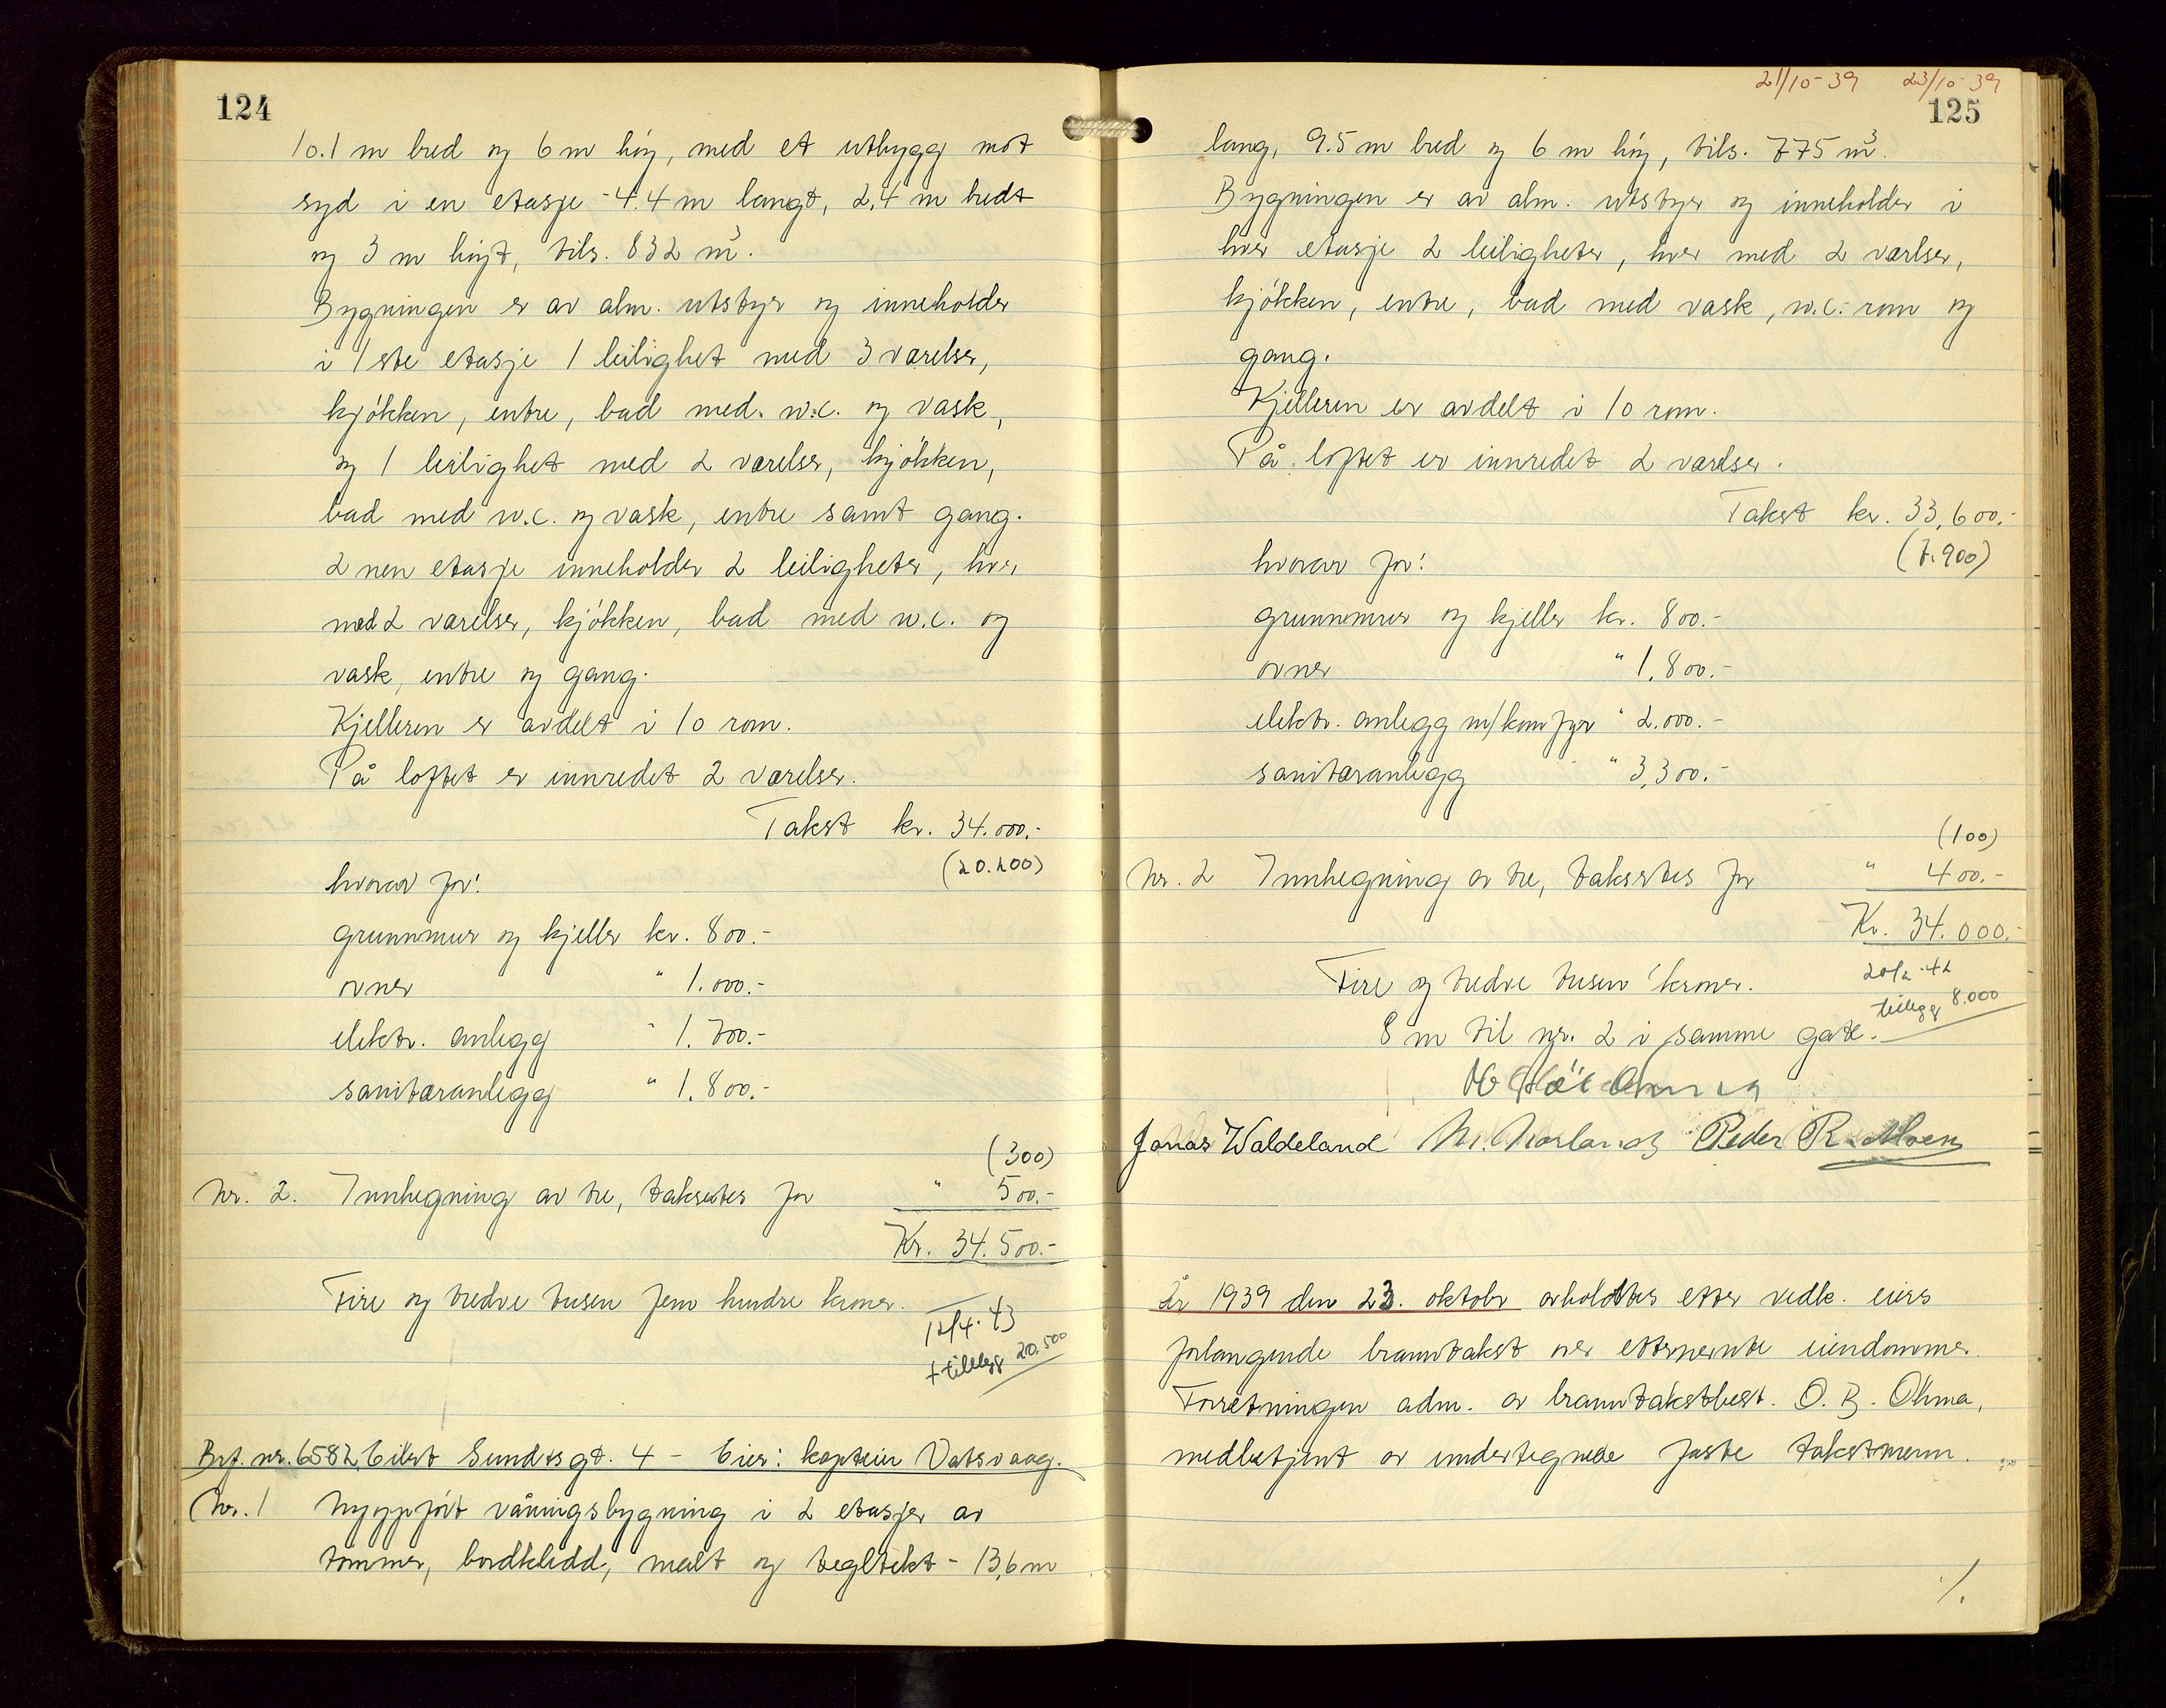 124
10.1 m bred og 6 m høy, med et utbygg mot
syd i en etasje - 4.4 m langt, 2,4 m bredt
og 3 m høyt, tils. 832 m³.
Bygningen er av alm. utstyr og inneholder
i 1ste etasje 1 leilighet med 3 værelser,
kjøkken, entre, bad med w.c. og vask,
og 1 leilighet med 2 værelser, kjøkken,
bad med w.c. og vask, entre samt gang.
2nen etasje inneholder 2 leiligheter, hver
med 2 værelser, kjøkken, bad med w.c. og
vask, entre og gang.
Kjelleren er avdelt i 10 rom.
På loftet er innredet 2 værelser.
Takst kr. 34.000.-
(20.200)
hvorav for:
grunnmur og kjeller kr. 800.-
ovner " 1.000.-
elektr. anlegg " 1.700.-
sanitæranlegg " 1.800.-
(300)
Nr. 2. Innhegning av tre, takseres for " 500.-
Kr. 34.500.-
Fire og tredve tusen fem hundre kroner.
12/4-43
+ tillegg 20.500
Brf. nr. 6582. Eilert Sundtsgt. 4 - Eier: kaptein Vatsvaag.
Nr. 1 Nyoppført våningsbygning i 2 etasjer av
tømmer, bordkledd, malt og tegltekt - 13,6 m
21/10-39 23/10-39
125
lang, 9.5 m bred og 6 m høy, tils. 775 m³.
Bygningen er av alm. utstyr og inneholder i
hver etasje 2 leiligheter, hver med 2 værelser,
kjøkken, entre, bad med vask, w.c. rom og
gang.
Kjelleren er avdelt i 10 rom.
På loftet er innredet 2 værelser.
Takst kr. 33,600.-
(7.900)
hvorav for:
grunnmur og kjeller kr. 800.-
ovner " 1.800.-
elektr. anlegg m/komfyr " 2.000.-
sanitæranlegg " 3,300.-
(100)
Nr. 2 Innhegning av tre, takseres for " 400.-
Kr. 34.000.-
Fire og tredve tusen kroner.
20/2-42
tillegg 8.000
8 m til nr. 2 i samme gate.
Jonas Waldeland N. Norland Peder R. Moen
År 1939 den 23. oktober avholdtes etter vedk. eiers
forlangende branntakst over etternevnte eiendommer.
Forretningen adm. av branntakstbest. O. B. Øhma,
medbetjent av undertegnede faste takstmenn.
./.